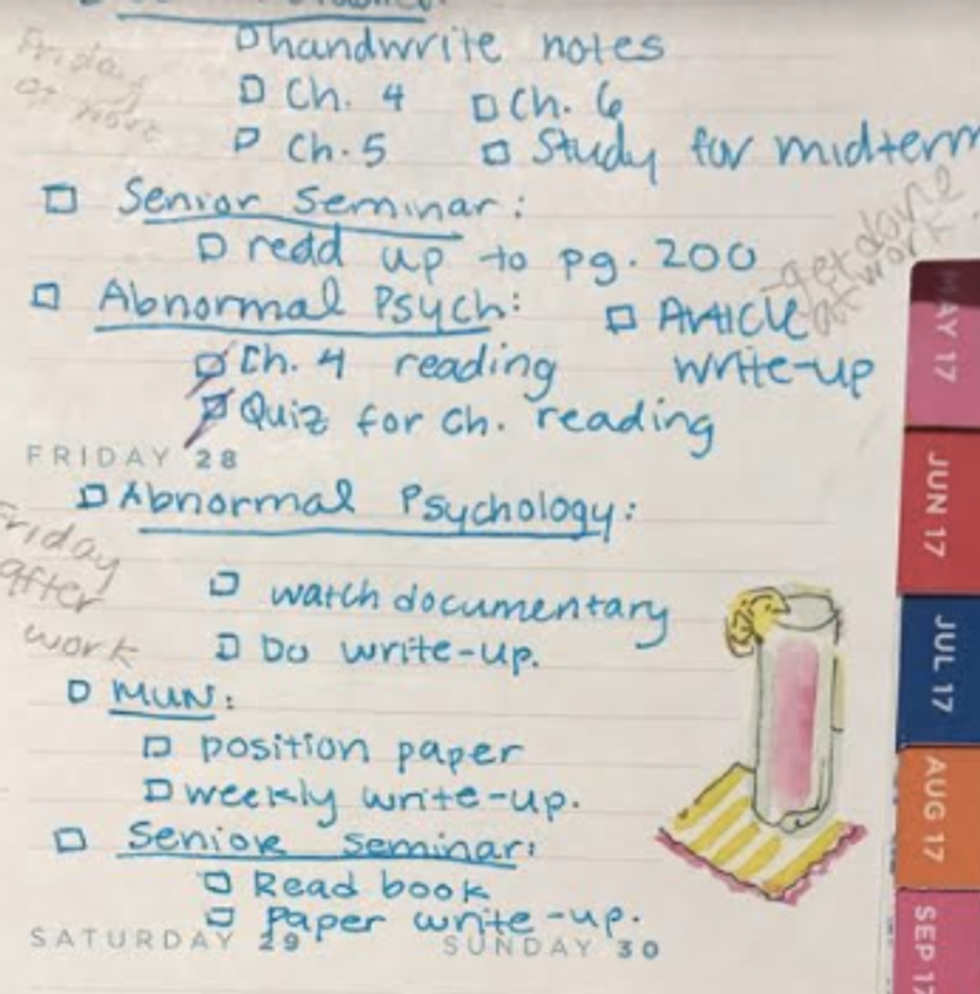 handwrite notes
Friday
at work
Ch. 4 Ch. 6
Ch. 5 Study for midterm
Senior Seminar:
read up to pg. 200
-get done
at work
Abnormal Psych: Article
Ch. 4 reading write-up
Quiz for Ch. reading
FRIDAY 28
Abnormal Psychology:
Friday
after
work
watch documentary
Do write-up.
MUN:
position paper
weekly write-up.
Senior Seminar:
Read book
Paper write-up.
SATURDAY 29 SUNDAY 30
MAY 17
JUN 17
JUL 17
AUG 17
SEP 17